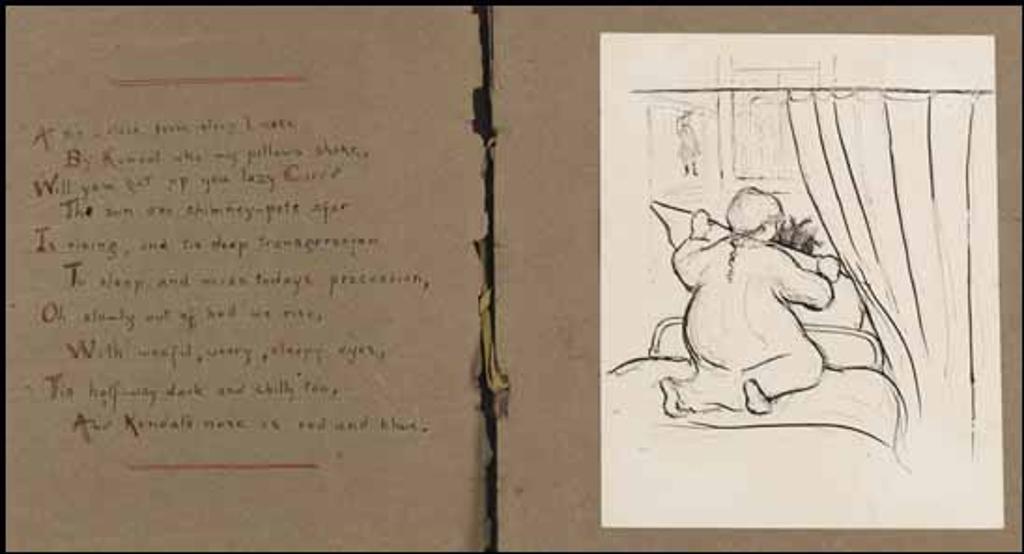 By Kendal who my pillows shake,
Will you get up you lazy
The sun over chimney-pots afar
Is rising, and tis deep transgression
To sleep and miss todays procession,
Oh slowly out of bed we rise,
With woeful, weary, sleepy eyes,
Tis half-way dark and chilly too,
And Kendals nose is red and blue.